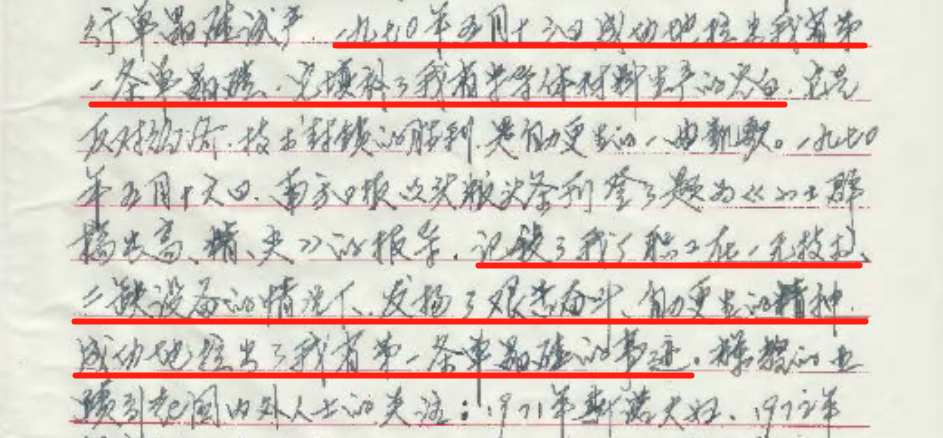 行单晶硅试产，一九七〇年五月十六日成功地拉出我省第
一条单晶硅，它填补了我省半导体材料生产的空白，它是
反对经济、技术封锁的胜利，是自力更生的一曲凯歌。一九七〇
年五月十六日，南方日报以头版头条刊登了题为《小土群
搞出高、精、尖》的报导，记载了我厂职工在一无技术、
二缺设备的情况下，发扬了艰苦奋斗、自力更生的精神，
成功地拉出了我省第一条单晶硅的事迹。辉煌的业
绩引起国内外人士的关注：1971年斯诺夫妇、1972年